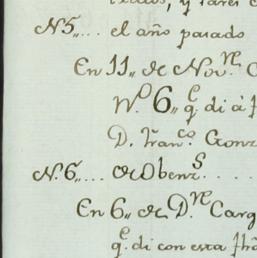 y
N.5,,... el año pasado
En 11,, de Nov.re
N.o 6,, q.e di á
D. Fran.co Gonz
N.6,,... de Obenz.s ....
En 6,, de D.re Carg
q.e di con esta fha